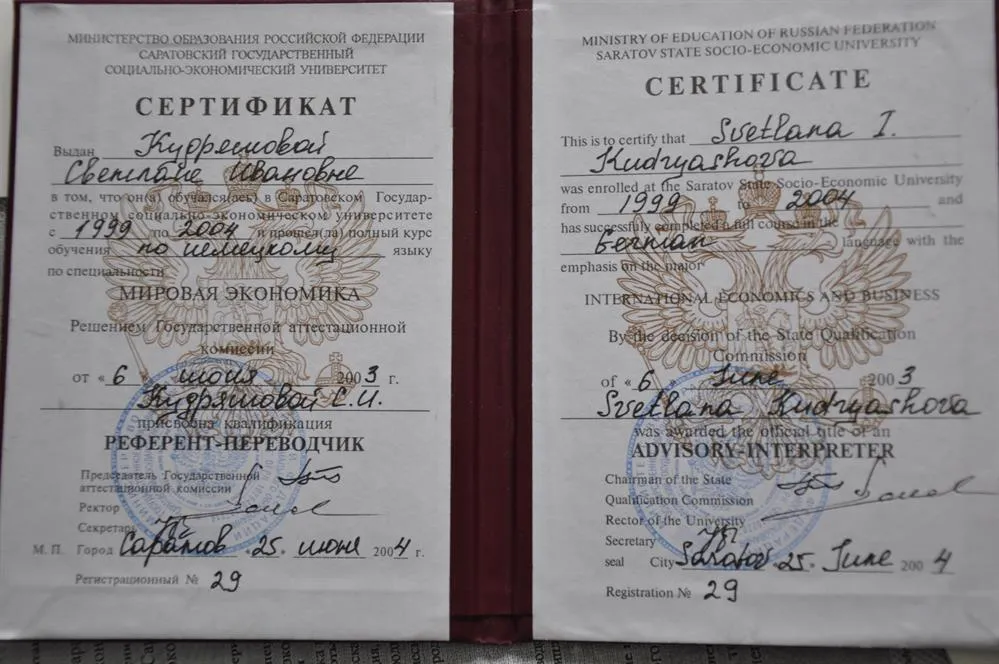 МИНИСТЕРСТВО ОБРАЗОВАНИЯ РОССИЙСКОЙ ФЕДЕРАЦИИ
САРАТОВСКИЙ ГОСУДАРСТВЕННЫЙ
СОЦИАЛЬНО-ЭКОНОМИЧЕСКИЙ УНИВЕРСИТЕТ
СЕРТИФИКАТ
Выдан Кудряшовой
Светлане Ивановне
в том, что он(а) обучался(ась) в Саратовском Государ-
ственном социально-экономическом университете
с 1999 по 2004 и прошел(ла) полный курс
обучения по немецкому языку
по специальности
МИРОВАЯ ЭКОНОМИКА
Решением Государственной аттестационной
комиссии
от «6 июня 2003 г.
Кудряшовой С.И.
присвоена квалификация
РЕФЕРЕНТ-ПЕРЕВОДЧИК
Председатель Государственной
аттестационной комиссии
Ректор
Секретарь
М. П. Город Саратов «25» июня 2004 г.
Регистрационный № 29
MINISTRY OF EDUCATION OF RUSSIAN FEDERATION
SARATOV STATE SOCIO-ECONOMIC UNIVERSITY
CERTIFICATE
This is to certify that Svetlana I.
Kudryashova
was enrolled at the Saratov State Socio-Economic University
from 1999 to 2004 and
has successfully completed a full course in the
German language with the
emphasis on the major
INTERNATIONAL ECONOMICS AND BUSINESS
By the decision of the State Qualification
Commission
of «6» June 2003
Svetlana Kudryashova
was awarded the official title of an
ADVISORY-INTERPRETER
Chairman of the State
Qualification Commission
Rector of the University
Secretary
seal City Saratov «25» June 2004
Registration № 29